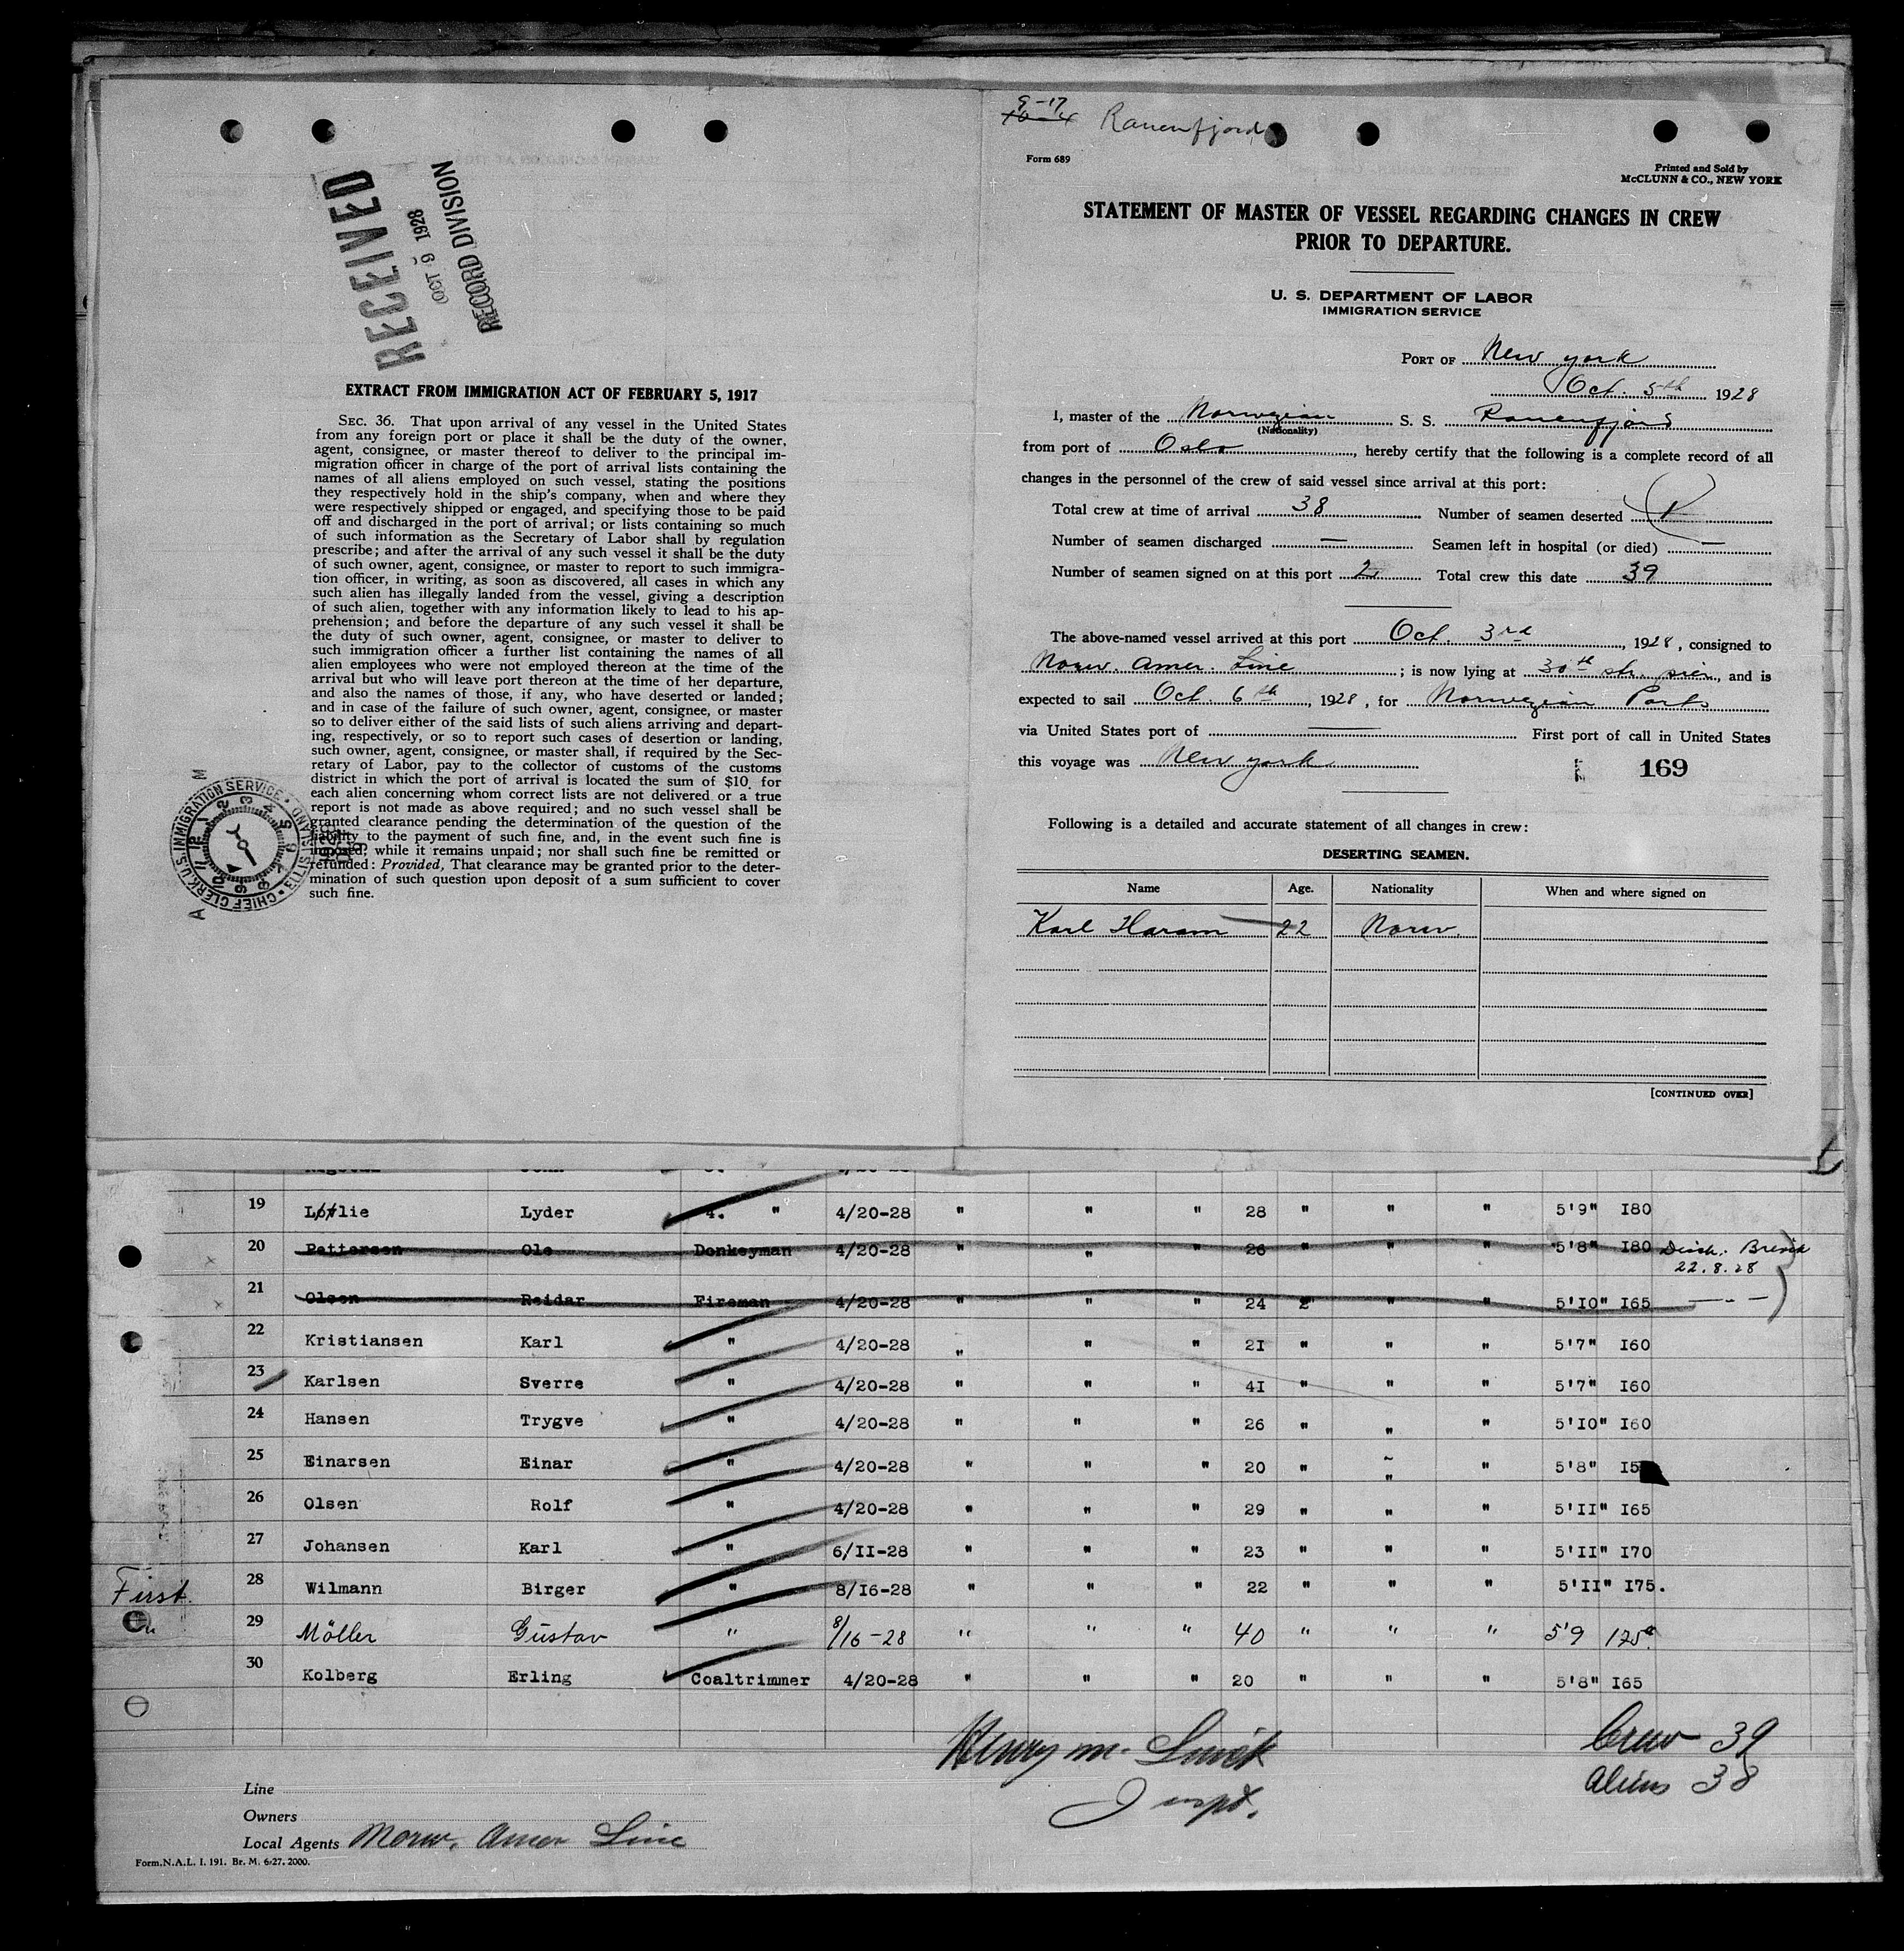 RECEIVED
OCT 9 1928
RECORD DIVISION
EXTRACT FROM IMMIGRATION ACT OF FEBRUARY 5, 1917
SEC. 36. That upon arrival of any vessel in the United States
from any foreign port or place it shall be the duty of the owner,
agent, consignee, or master thereof to deliver to the principal im-
migration officer in charge of the port of arrival lists containing the
names of all aliens employed on such vessel, stating the positions
they respectively hold in the ship's company, when and where they
were respectively shipped or engaged, and specifying those to be paid
off and discharged in the port of arrival; or lists containing so much
of such information as the Secretary of Labor shall by regulation
prescribe; and after the arrival of any such vessel it shall be the duty
of such owner, agent, consignee, or master to report to such immigra-
tion officer, in writing, as soon as discovered, all cases in which any
such alien has illegally landed from the vessel, giving a description
of such alien, together with any information likely to lead to his ap-
prehension; and before the departure of any such vessel it shall be
the duty of such owner, agent, consignee, or master to deliver to
such immigration officer a further list containing the names of all
alien employees who were not employed thereon at the time of the
arrival but who will leave port thereon at the time of her departure,
and also the names of those, if any, who have deserted or landed;
and in case of the failure of such owner, agent, consignee, or master
so to deliver either of the said lists of such aliens arriving and depart-
ing, respectively, or so to report such cases of desertion or landing,
such owner, agent, consignee, or master shall, if required by the Sec-
retary of Labor, pay to the collector of customs of the customs
district in which the port of arrival is located the sum of $10 for
each alien concerning whom correct lists are not delivered or a true
report is not made as above required; and no such vessel shall be
granted clearance pending the determination of the question of the
liability to the payment of such fine, and, in the event such fine is
imposed, while it remains unpaid; nor shall such fine be remitted or
refunded: Provided, That clearance may be granted prior to the deter-
mination of such question upon deposit of a sum sufficient to cover
such fine.
CHIEF CLERK, U.S. IMMIGRATION SERVICE • ELLIS ISLAND
9-17
10-4 Ranenfjord
Form 689
Printed and Sold by
McCLUNN & CO., NEW YORK
STATEMENT OF MASTER OF VESSEL REGARDING CHANGES IN CREW
PRIOR TO DEPARTURE.
U. S. DEPARTMENT OF LABOR
IMMIGRATION SERVICE
PORT OF New York
Oct. 5th 1928
I, master of the Norwegian S. S. Ranenfjord
(Nationality)
from port of Oslo, hereby certify that the following is a complete record of all
changes in the personnel of the crew of said vessel since arrival at this port:
Total crew at time of arrival 38 Number of seamen deserted 1
Number of seamen discharged — Seamen left in hospital (or died) —
Number of seamen signed on at this port 2 Total crew this date 39
The above-named vessel arrived at this port Oct. 3rd, 1928, consigned to
Norw. Amer. Line; is now lying at 30th str. pier, and is
expected to sail Oct. 6th, 1928, for Norwegian Ports
via United States port of — First port of call in United States
this voyage was New York.
169
Following is a detailed and accurate statement of all changes in crew:
DESERTING SEAMEN.
Name Age. Nationality When and where signed on
Karl Haram 22 Norw.
[CONTINUED OVER]
19 Lötlie Lyder 4. " 4/20-28 " " " 28 " " " 5'9" I80
20 Pettersen Ole Donkeyman 4/20-28 " " 26 " " " 5'8" I80 Disch. Brevik
22.8.28
21 Olsen Reidar Fireman 4/20-28 " " " 24 " " " 5'IO" I65 —"—
22 Kristiansen Karl " 4/20-28 " " " 2I " " " 5'7" I60
23 Karlsen Sverre " 4/20-28 " " " 4I " " " 5'7" I60
24 Hansen Trygve " 4/20-28 " " " 26 " " " 5'IO" I60
25 Einarsen Einar " 4/20-28 " " " 20 " " " 5'8" I5
26 Olsen Rolf " 4/20-28 " " " 29 " " " 5'II" I65
27 Johansen Karl " 6/II-28 " " " 23 " " " 5'II" I70
First. 28 Wilmann Birger " 8/I6-28 " " " 22 " " " 5'II" I75.
" 29 Möller Gustav " 8/16-28 " " " 40 " " " 5'9 175.
30 Kolberg Erling Coaltrimmer 4/20-28 " " " 20 " " " 5'8" I65
Henry M. Smith
Inspt.
Crew 39
Aliens 38
Line
Owners
Local Agents Norw. Amer Line
Form.N.A.L. I. 191. Br. M. 6-27. 2000.